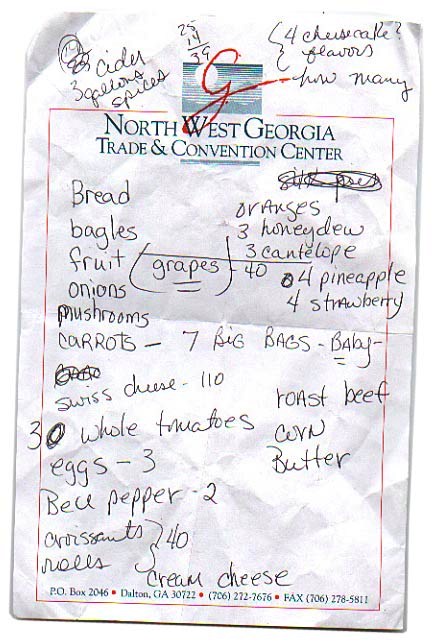 25
14
39
cider
3 gallons
spices
4 cheesecake?
flavors
how many
G
NORTH WEST GEORGIA
TRADE & CONVENTION CENTER
Bread
bagles
fruit (grapes) - 40
onions
mushrooms
oranges
3 honeydew
3 cantelope
4 pineapple
4 strawberry
CARROTS - 7 BIG BAGS - BABY-
swiss cheese - 110
30 whole tomatoes
eggs - 3
Bell pepper - 2
croissants } 40
rolls
cream cheese
roast beef
CORN
Butter
P.O. Box 2046 • Dalton, GA 30722 • (706) 272-7676 • FAX (706) 278-5811